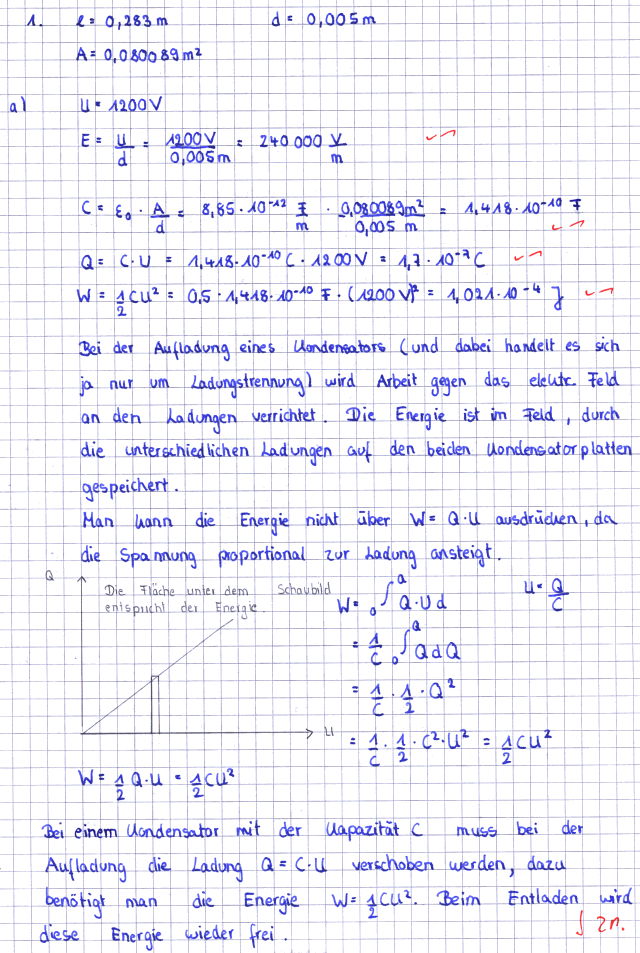 1. l = 0,283 m d = 0,005 m
A = 0,080089 m²
a) U = 1200 V
E = U/d = 1200 V/0,005 m = 240 000 V/m
C = ε₀ · A/d = 8,85 · 10⁻¹² F/m · 0,080089 m²/0,005 m = 1,418 · 10⁻¹⁰ F
Q = C · U = 1,418 · 10⁻¹⁰ C · 1200 V = 1,7 · 10⁻⁷ C
W = 1/2 CU² = 0,5 · 1,418 · 10⁻¹⁰ F · (1200 V)² = 1,021 · 10⁻⁴ J
Bei der Aufladung eines Kondensators (und dabei handelt es sich
ja nur um Ladungstrennung) wird Arbeit gegen das elektr. Feld
an den Ladungen verrichtet. Die Energie ist im Feld, durch
die unterschiedlichen Ladungen auf den beiden Kondensatorplatten
gespeichert.
Man kann die Energie nicht über W = Q·U ausdrücken, da
die Spannung proportional zur Ladung ansteigt.
Q
Die Fläche unter dem Schaubild
entspricht der Energie
U
W = ₀∫^Q Q·U d U = Q/C
= 1/C ₀∫^Q Q dQ
= 1/C · 1/2 · Q²
= 1/C · 1/2 · C² · U² = 1/2 CU²
W = 1/2 Q·U = 1/2 CU²
Bei einem Kondensator mit der Kapazität C muss bei der
Aufladung die Ladung Q = C·U verschoben werden, dazu
benötigt man die Energie W = 1/2 CU². Beim Entladen wird
diese Energie wieder frei.